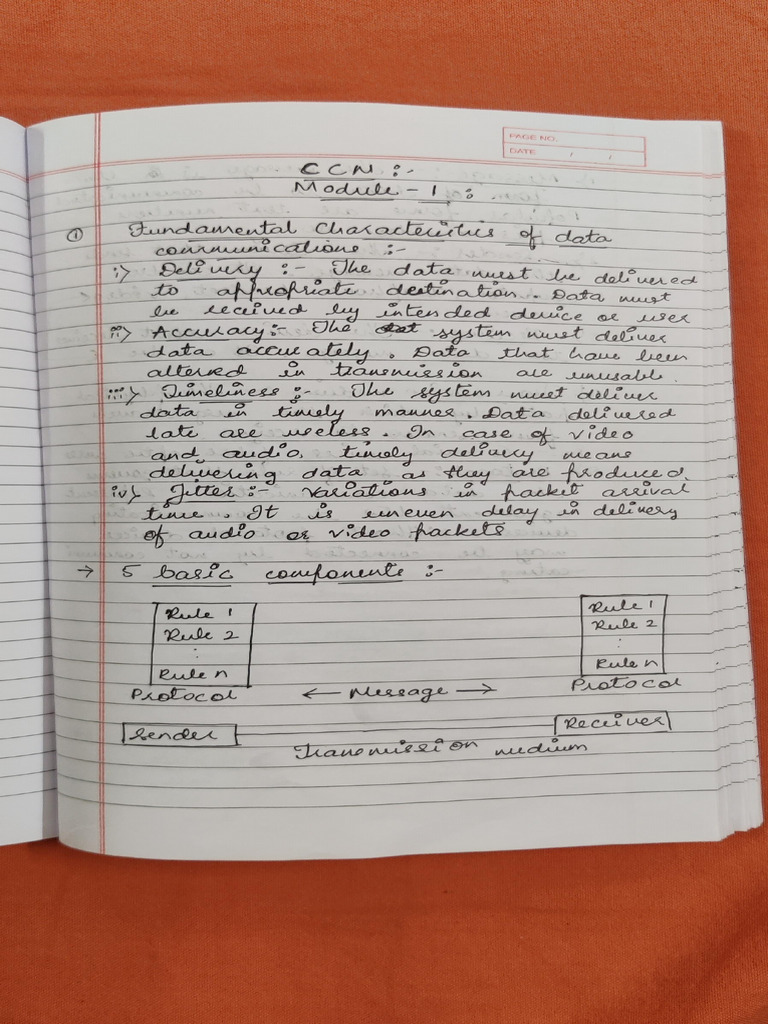 PAGE NO.
DATE / /
CCN :-
Module - 1 :
① Fundamental Characteristics of data
communications :-
i> Delivery :- The data must be delivered
to appropriate destination. Data must
be received by intended device or user
ii> Accuracy :- The system must deliver
data accurately. Data that have been
altered in transmission are unusable.
iii> Timeliness :- The system must deliver
data in timely manner. Data delivered
late are useless. In case of video
and audio, timely delivery means
delivering data as they are produced.
iv> Jitter :- Variations in packet arrival
time. It is uneven delay in delivery
of audio or video packets
→ 5 basic components :-
Rule 1 Rule 1
Rule 2 Rule 2
: :
Rule n Rule n
Protocol ← Message → Protocol
Sender Receiver
Transmission medium